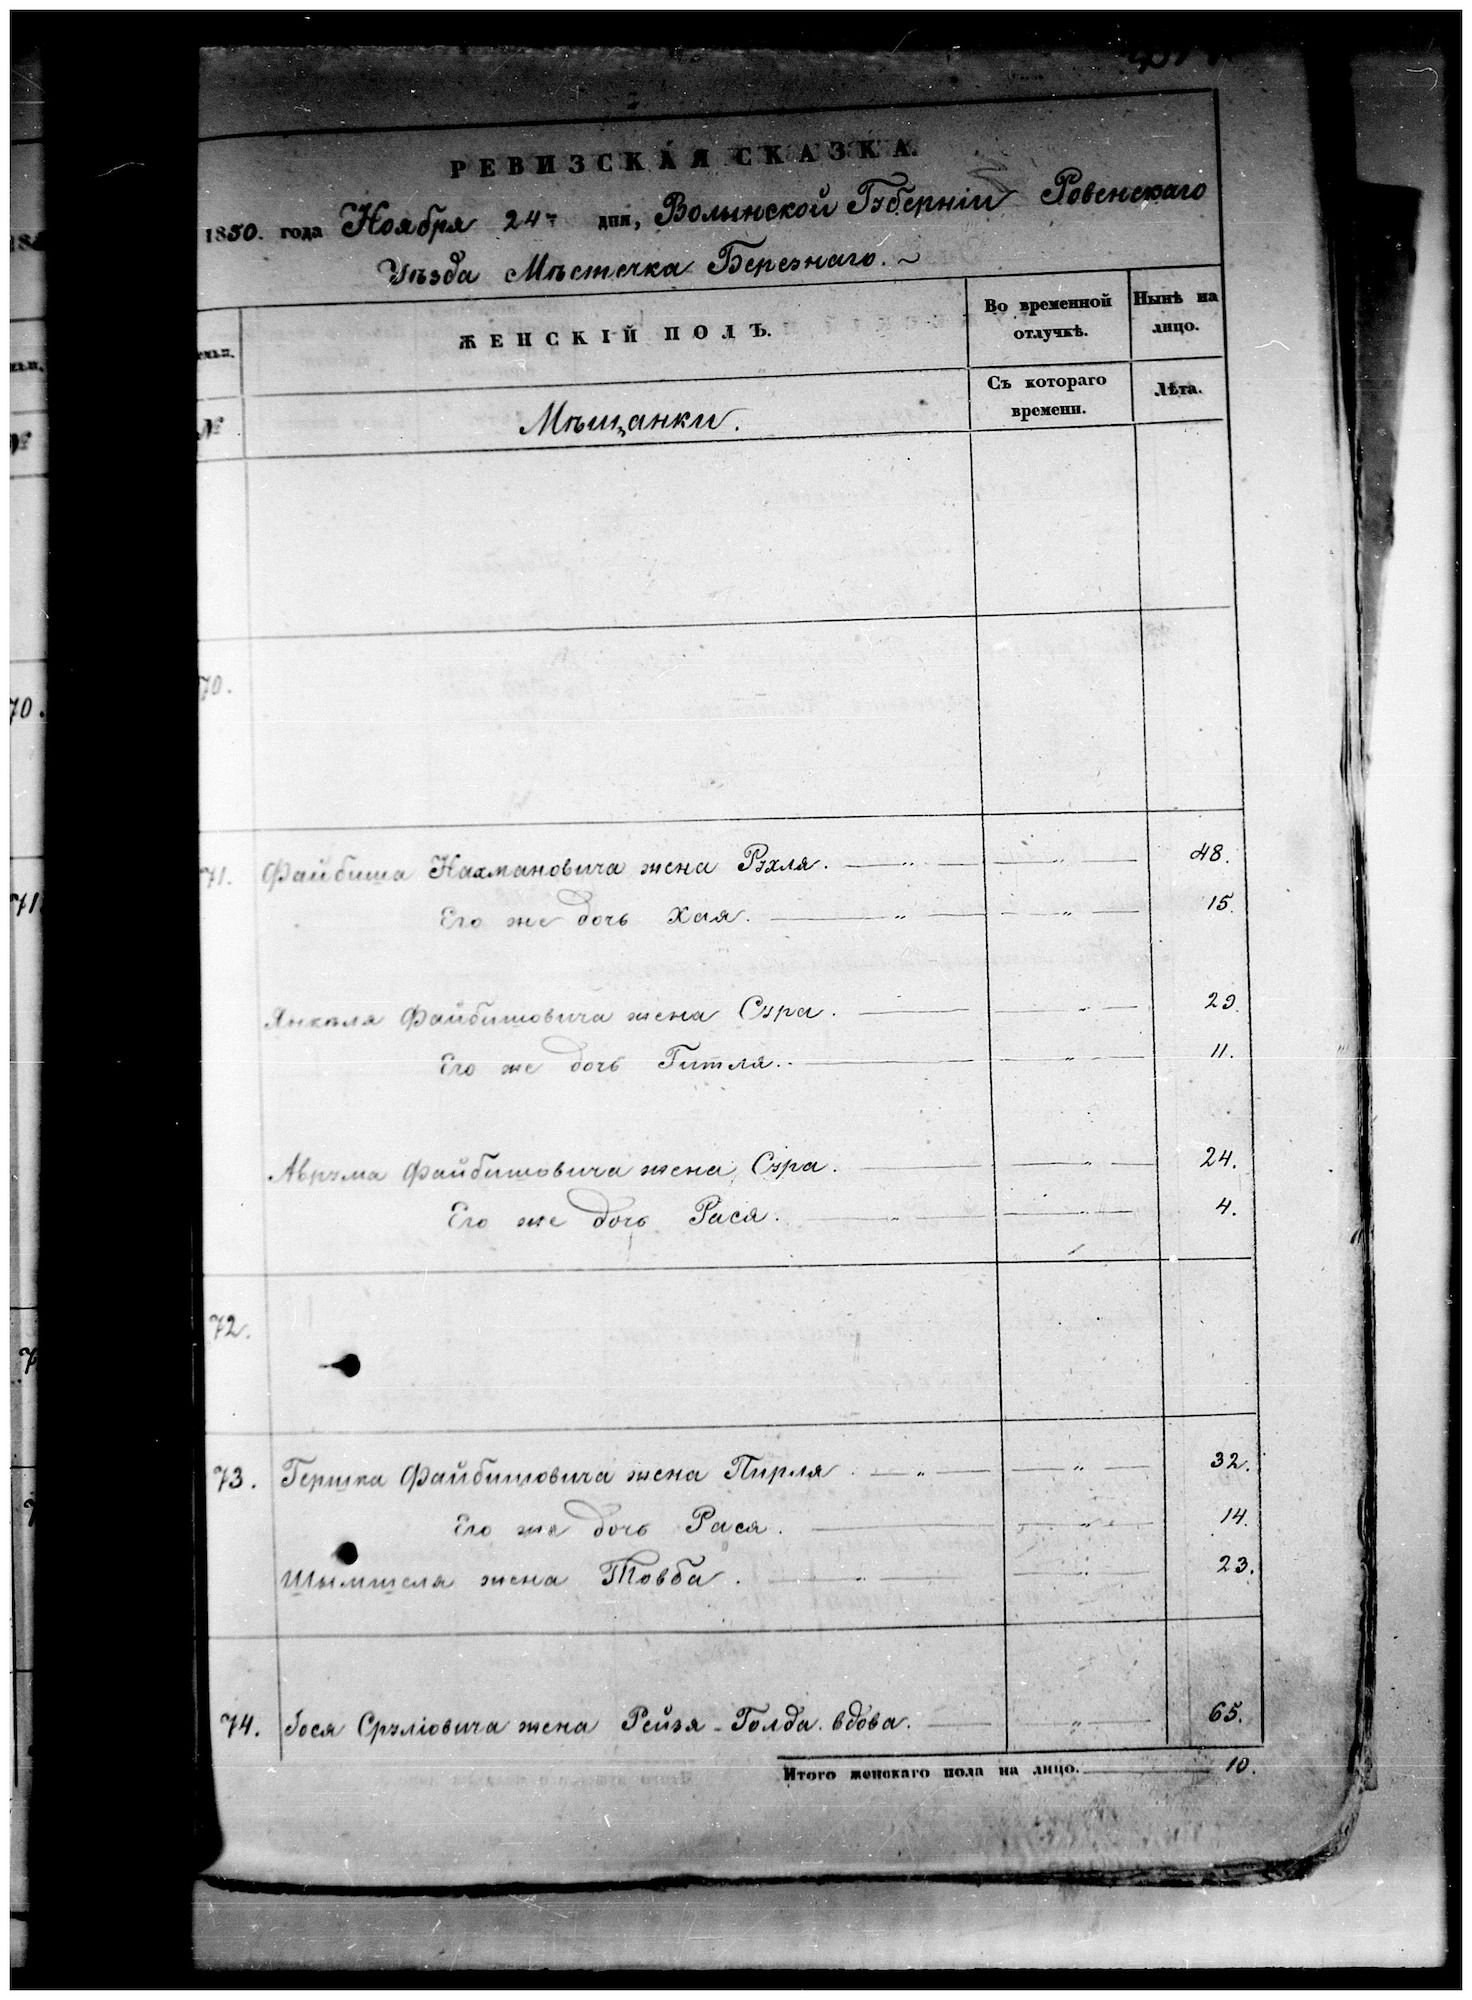 РЕВИЗСКАЯ СКАЗКА.
1850. года Ноября 24 дня, Волынской Губерніи Ровенскаго
Уѣзда Мѣстечка Березнаго.
ЖЕНСКІЙ ПОЛЪ.
Во временной отлучкѣ.
Нынѣ на лицо.
№
Мѣщанки.
Съ котораго времени.
Лѣта.
70.
71. Файбиша Нахмановича жена Рэхля. 48.
Его же дочь Хая. 15.
Янкеля Файбишовича жена Сура. 29.
Его же дочь Гитля. 11.
Аврума Файбишовича жена Сура. 24.
Его же дочь Рася. 4.
72.
73. Гершка Файбишовича жена Пирля. 32.
Его же дочь Рася. 14.
жена Товба. 23.
74. Іося Сруліовича жена Рейзя-Голда вдова. 65.
Итого женскаго пола на лицо. 10.
70.
71